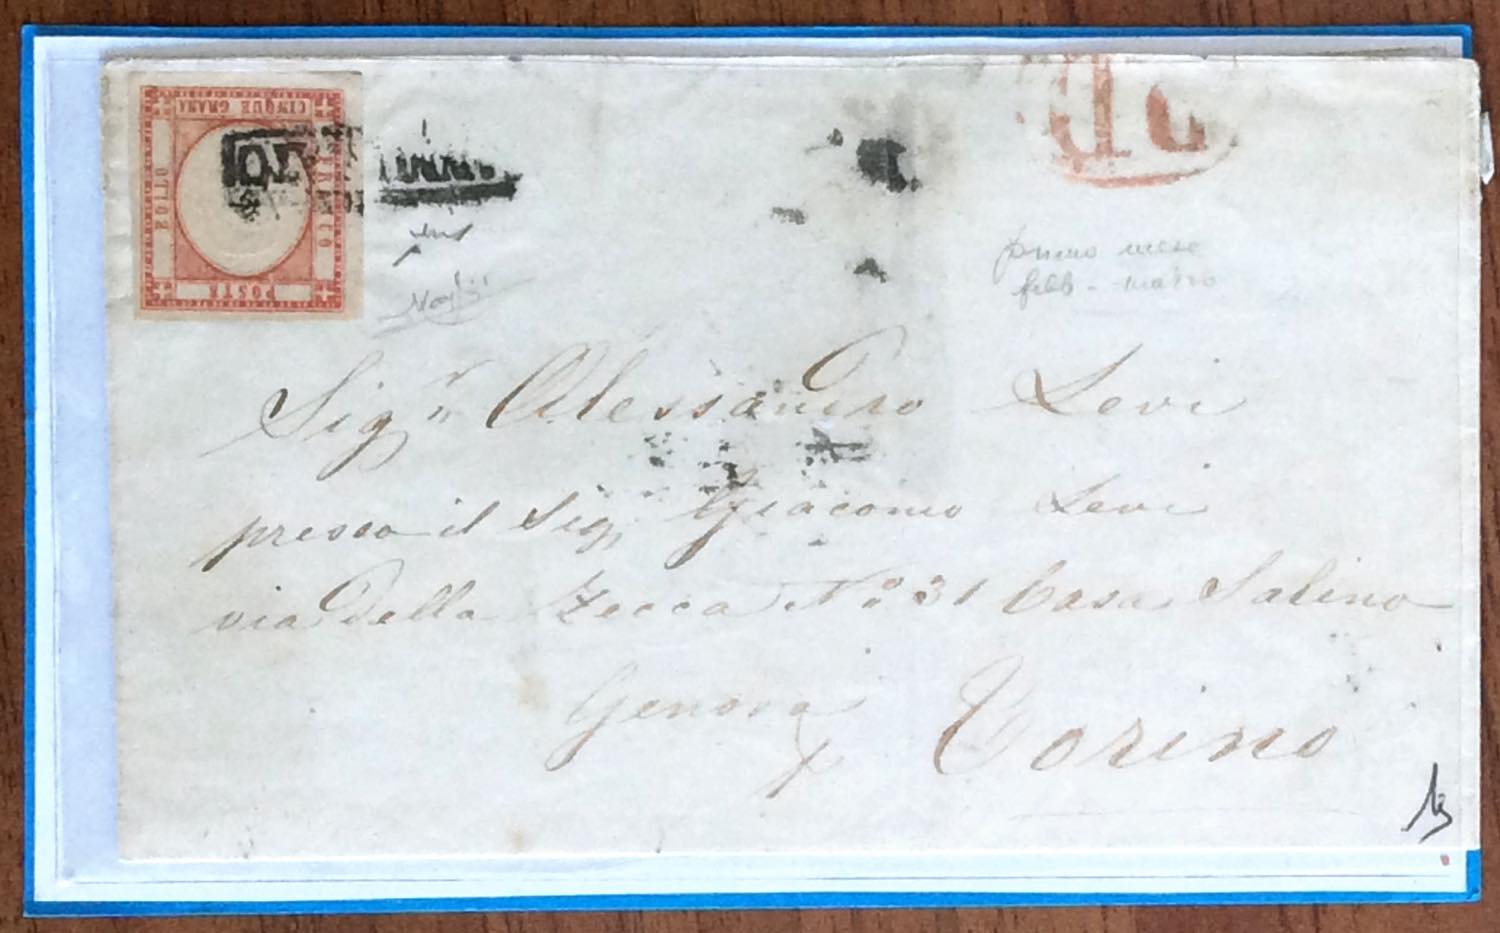 CINQUE GRANA
FRANCO
BOLLO
POSTE
primo mese
febb - marzo
Sigr Alessandro Levi
presso il Sig. Giacomo Levi
via Della Zecca No 31 Casa Salino
Genova
Torino